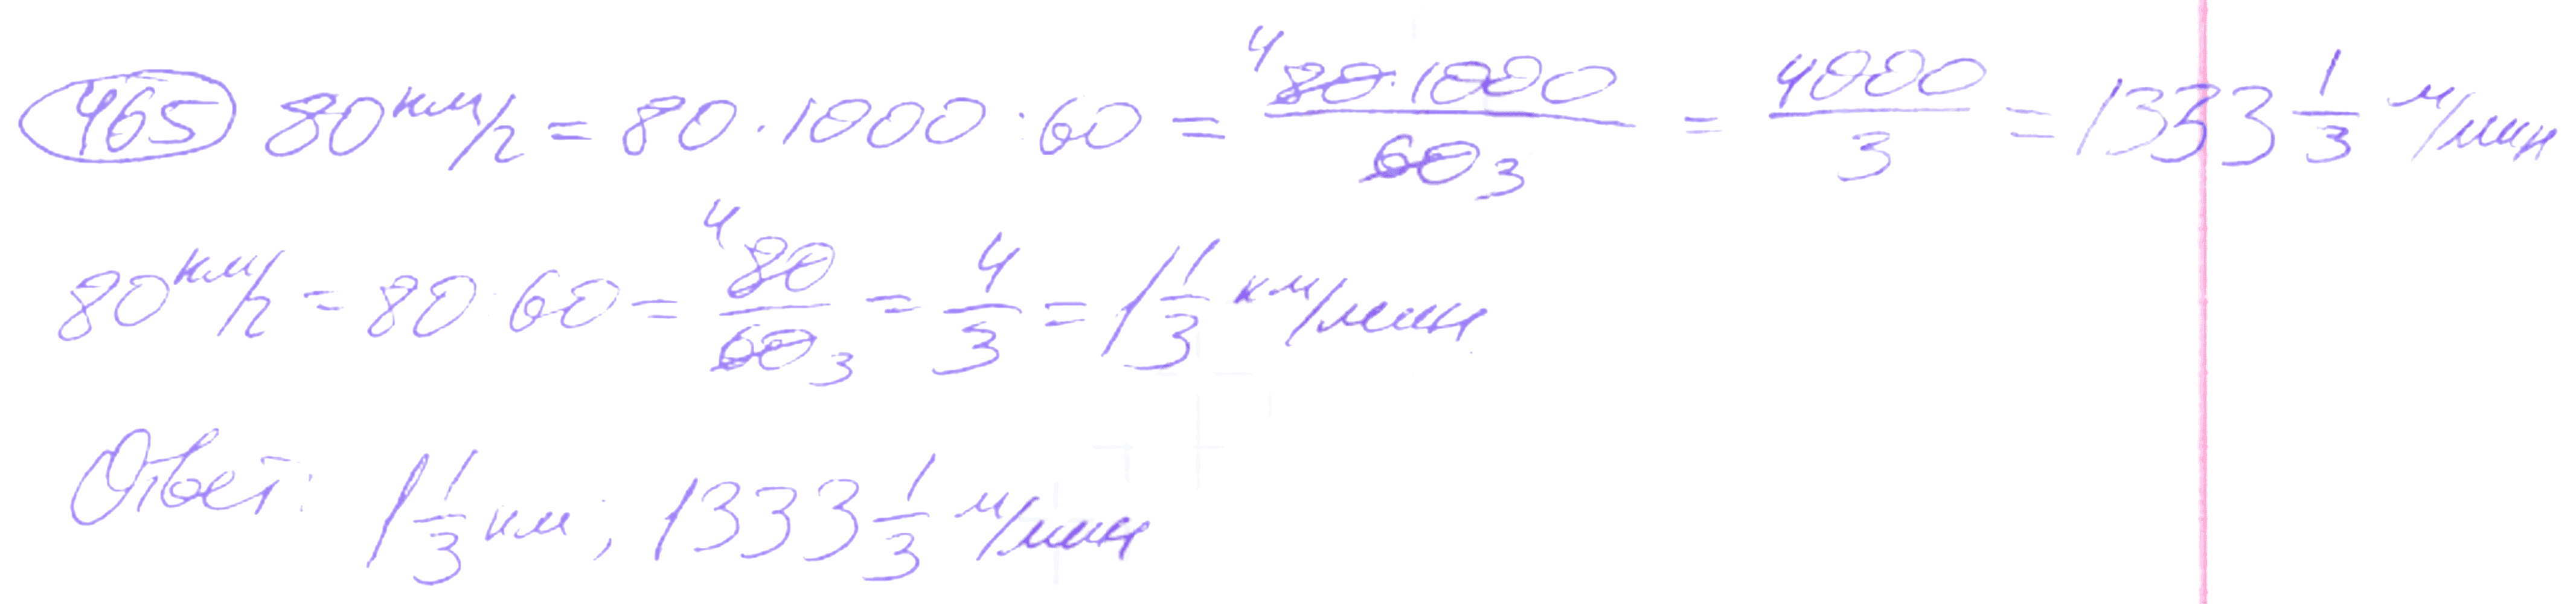 465 80 км/ч = 80 · 1000 : 60 = ⁴80·1000/60₃ = 4000/3 = 1333 1/3 м/мин
80 км/ч = 80 : 60 = ⁴80/60₃ = 4/3 = 1 1/3 км/мин
Ответ: 1 1/3 км; 1333 1/3 м/мин